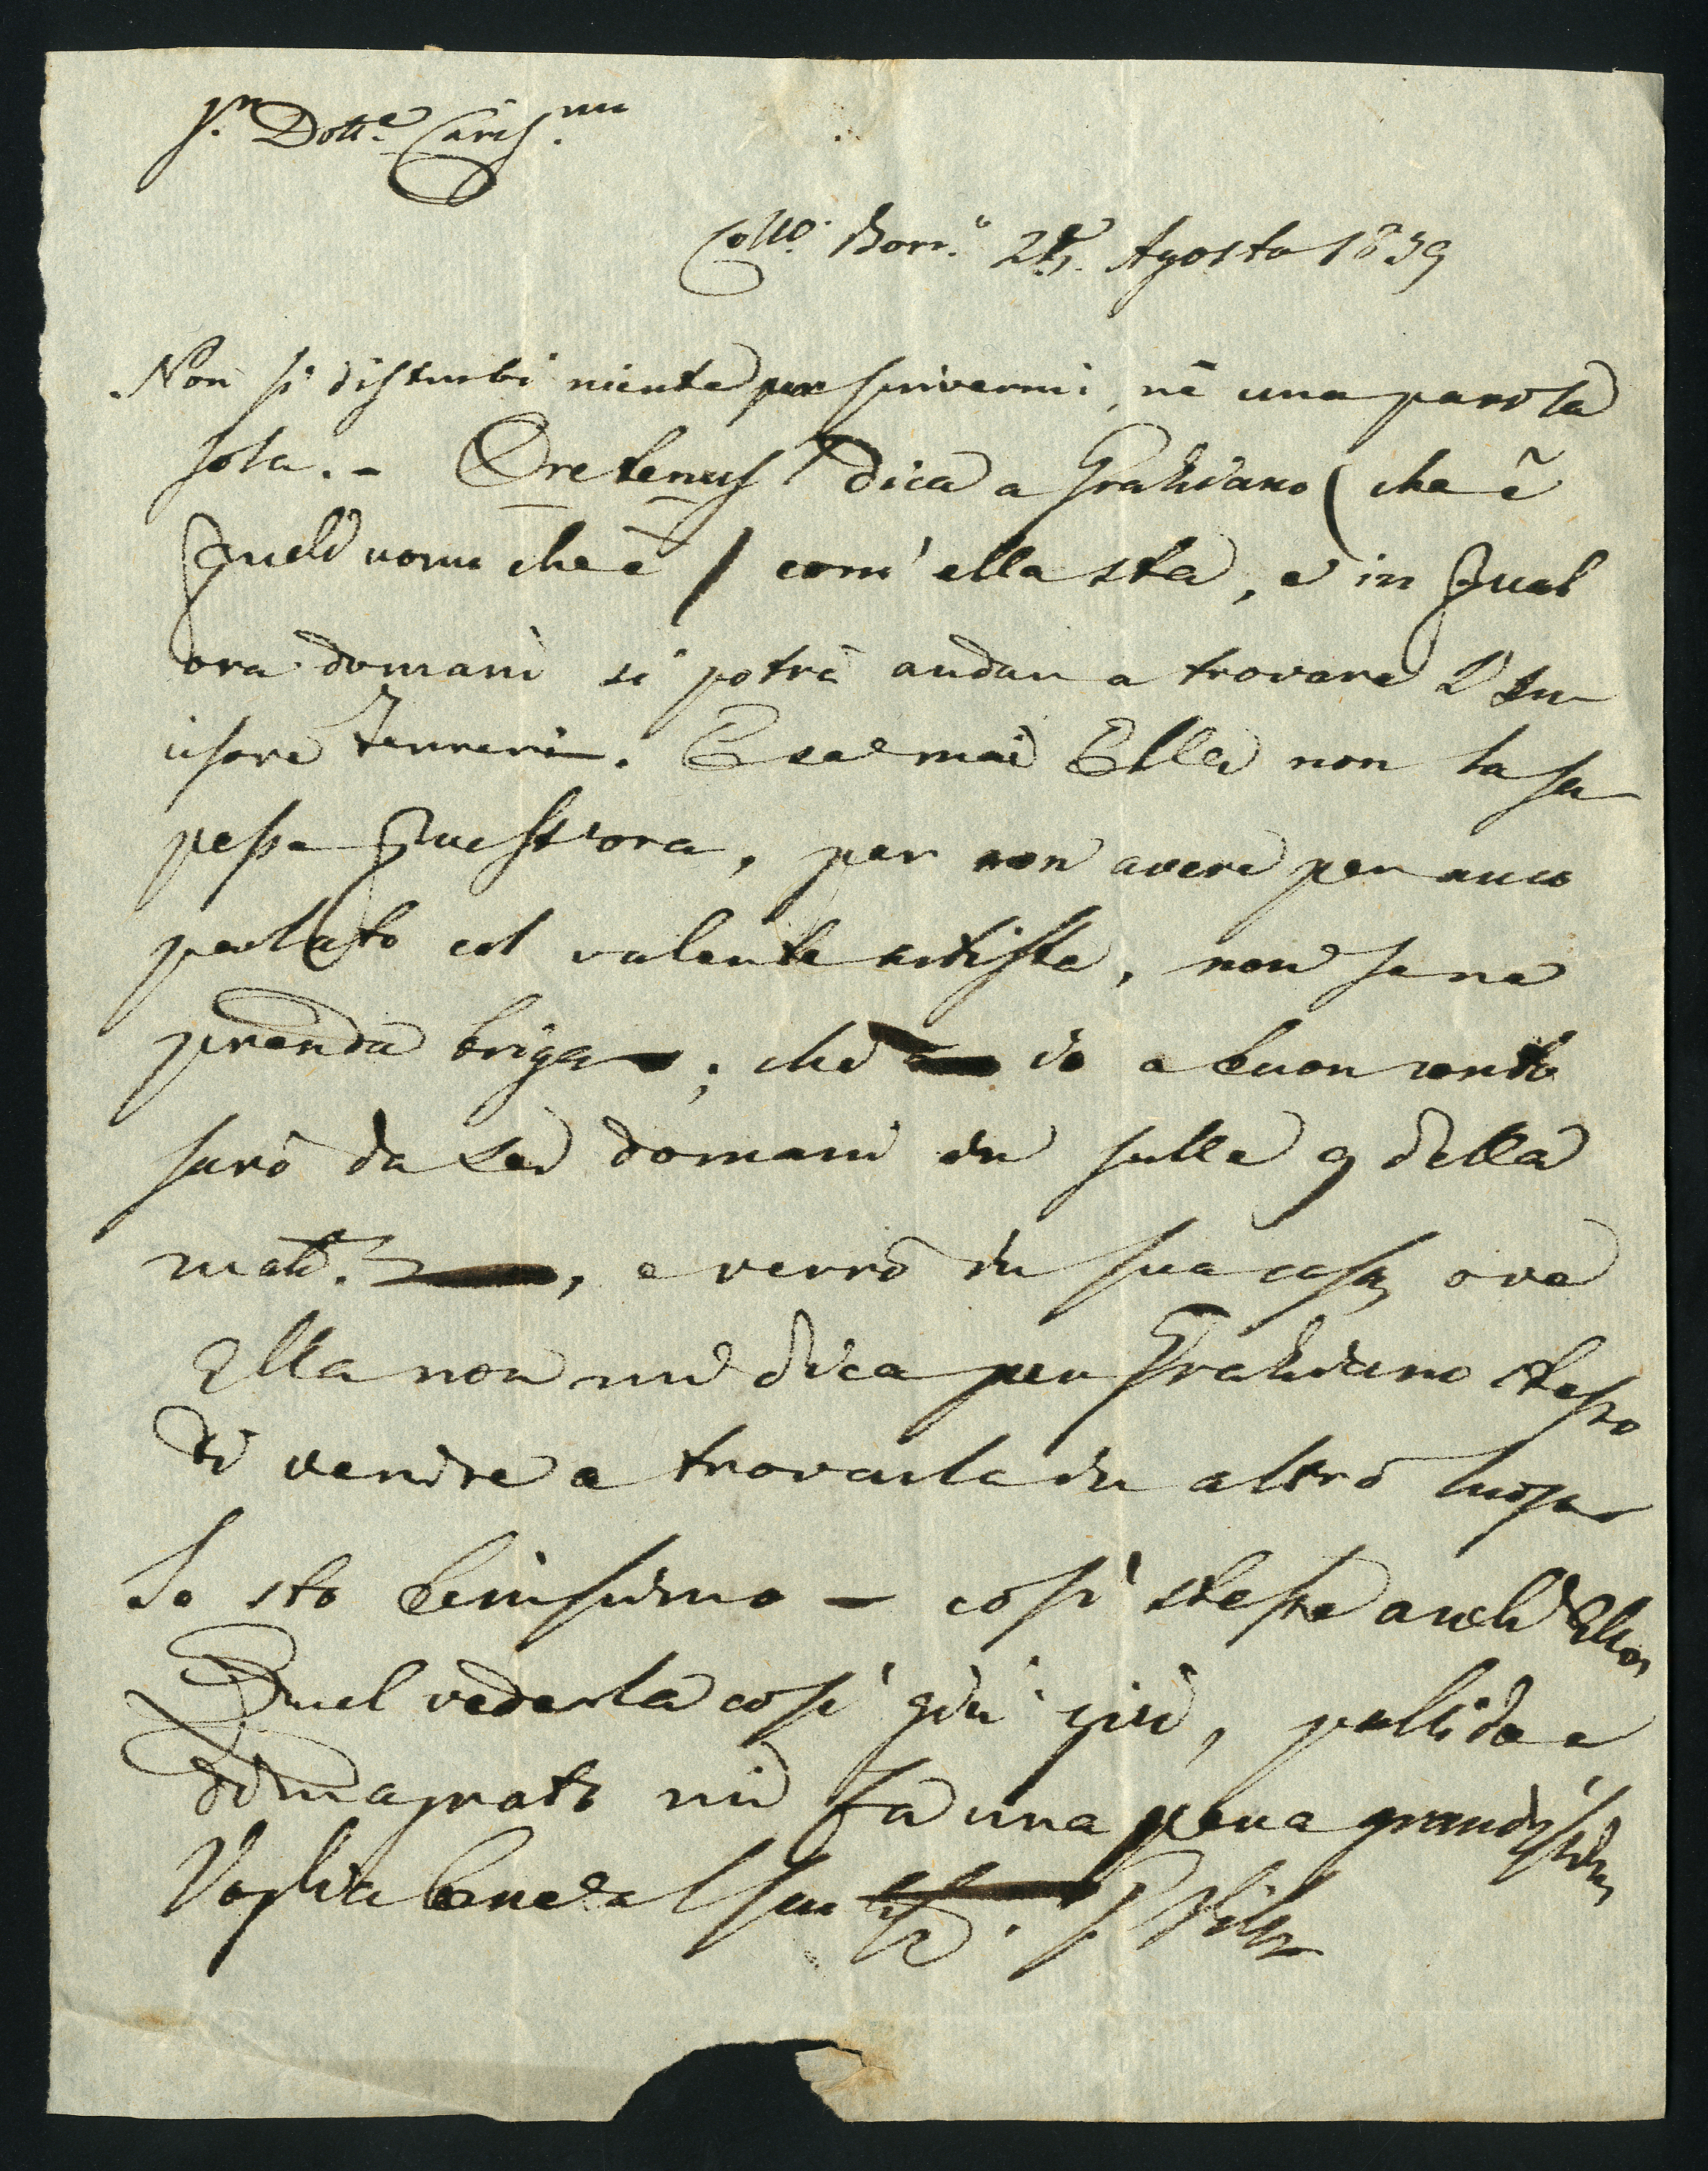 Sr. Dotte. Cariss.mo
Coll.o Borr.o Agosto 1839
Non si disturbi niente per scrivermi, nè una parola
sola. - Oretenus dica a Graziano (che è
quell' uomo che è) com' ella sta, e in qual
ora domani si potrà andare a trovare l'In-
cisore Ferreri. E se mai Ella non la sa-
pesse quest'ora, per non avere per anco
parlato col valente artista, non se ne
prenda briga; che io a buon conto
sarò da Lei domani in sulle 9 della
matt.a, e verrò in sua casa, ove
Ella non mi dica per Graziano stesso
di venire a trovarla in altro luogo
Io sto benissimo - così stesse anch' Ella,
Quel vederla così giù giù, pallido e
dimagrato mi fa una pena grandissima,
Voglia bene al suo